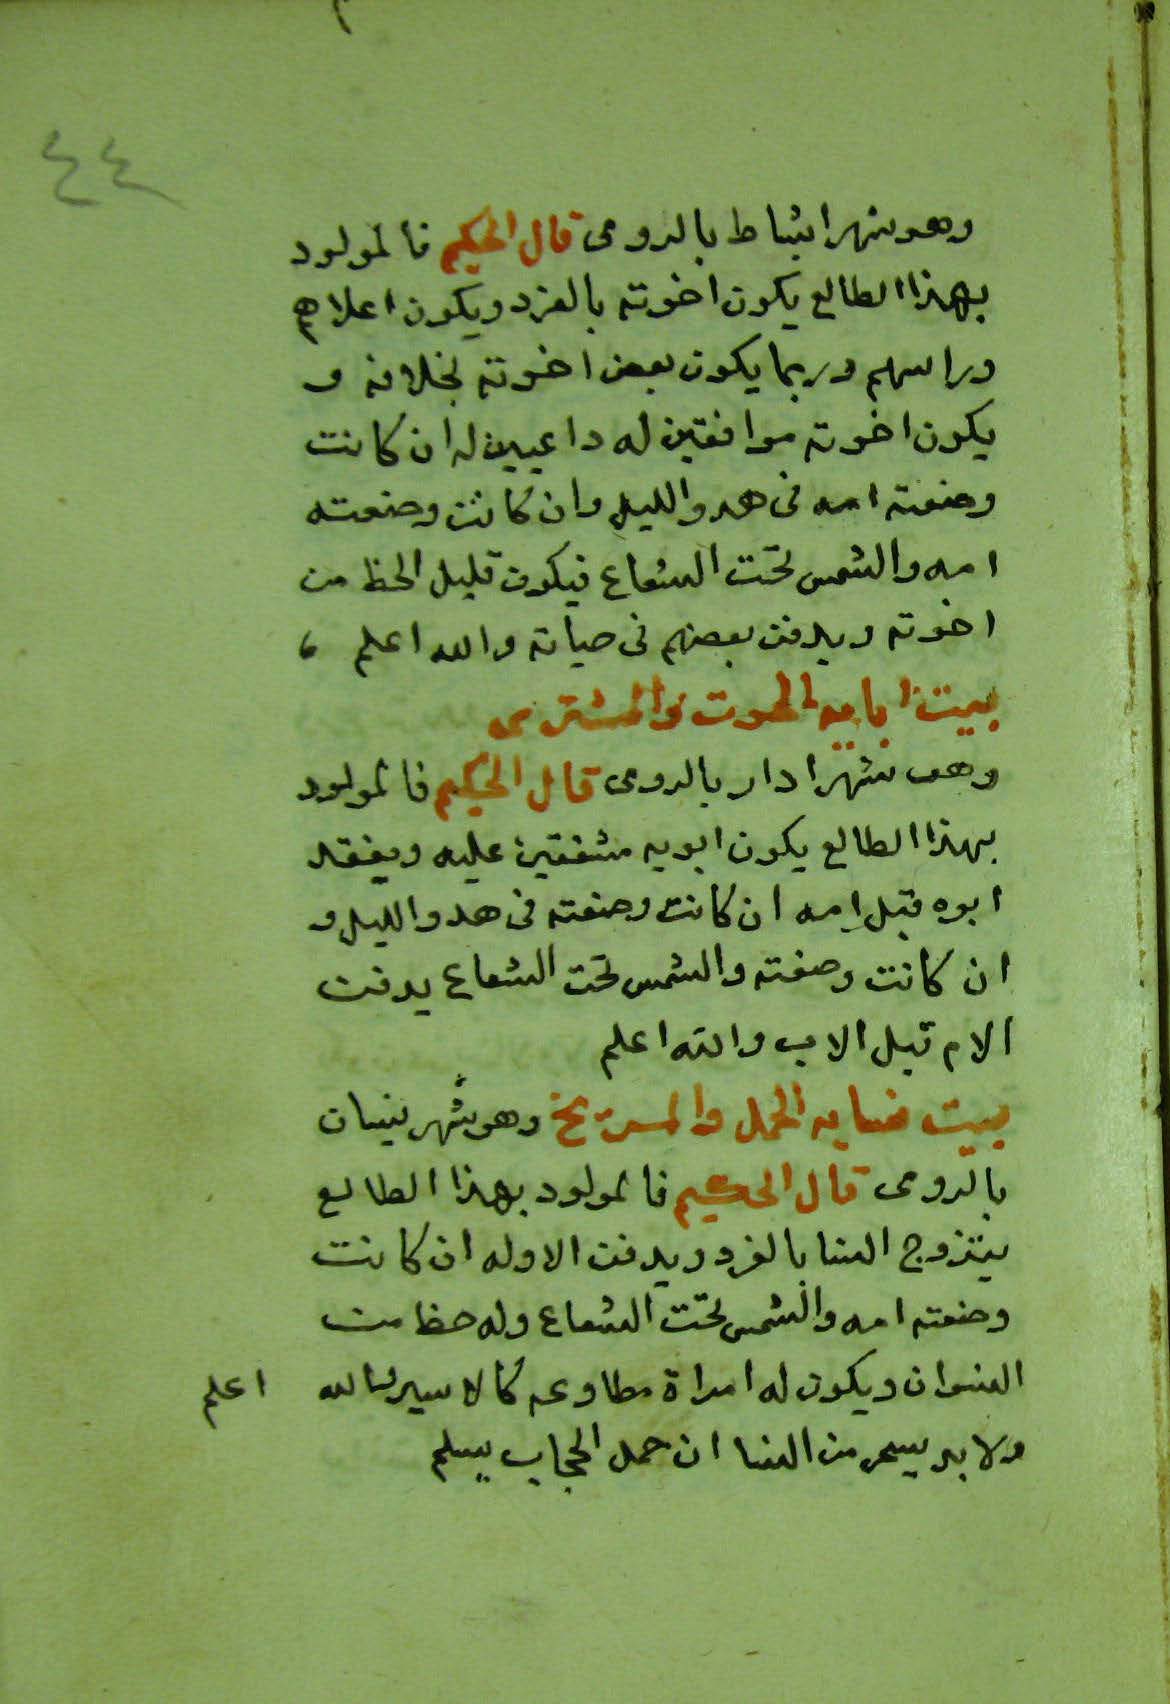 ٤٤
وهو شهر اشباط بالرومى قال الحكيم فالمولود
بهذا الطالع يكون اخوته بالفرد ويكون اعلاهم
وراسهم وربما يكون بعض اخوته بخلافه و
يكون اخوته موافقين له داعيين له ان كانت
وضعته امه فى هدو الليل وان كانت وضعته
امه والشمس تحت الشعاع فيكون قليل الحظ من
اخوته ويدفن بعضهم فى حياته والله اعلم ،
بيت ابايه الحوت والمشترى
وهو شهر ادار بالرومى قال الحكيم فالمولود
بهذا الطالع يكون ابويه مشفقين عليه ويفقد
ابوه قبل امه ان كانت وضعته فى هدو الليل و
ان كانت وضعته والشمس تحت الشعاع يدفن
الام قبل الاب والله اعلم
بيت نسايه الحمل والمريخ وهو شهر نيسان
بالرومى قال الحكيم فالمولود بهذا الطالع
يتزوج النسا بالفرد ويدفن الاوله ان كانت
وضعته امه والشمس تحت الشعاع وله حظ من
النسوان ويكون له امراة مطاوعه كالاسير لله اعلم
ولا بد يسحر من النسا ان حمل الحجاب يسلم